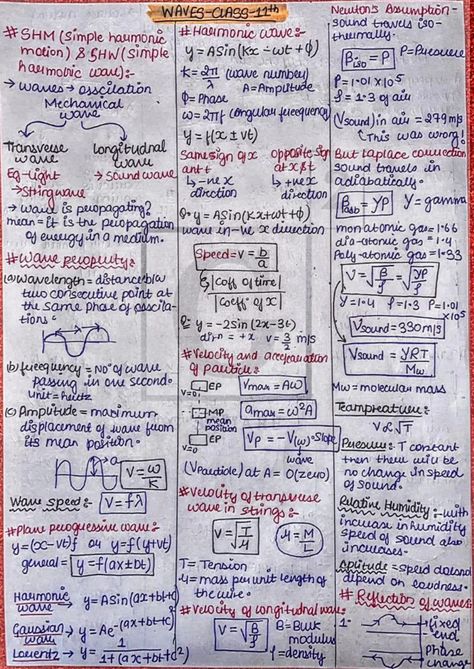 WAVES-CLASS-11th
# SHM (Simple harmonic
motion) & SHW (Simple
harmonic wave):-
→ waves → osscilation
Mechanical
wave
Transverse
wave
Longitudnal
wave
Eg- light
→ String wave
→ Sound wave
→ wave is propagating?
mean = it is the propagation
of energy in a medium.
# Wave property:-
(a) Wavelength = distance b/w
two consecutive point at
the same phase of osscila-
tions.
(b) frequency = No of wave
passing in one second.
unit = hertz
(c) Amplitude = maximum
displacement of wave from
its mean position.
V = ω/K
Wave speed:- V = fλ
# Plane progressive wave:-
y = (x-vt)f or y = f(y+vt)
general = y = f(ax+bt)
Harmonic wave → y = ASin(ax+bt+c)
Gaussian wave → y = Ae^-(ax+bt+c)
Lorentz → y = 1/1+(ax+bt+c)²
# Harmonic wave:-
y = ASin(Kx-ωt+ϕ)
K = 2π/λ (wave number)
A = Amplitude
ϕ = Phase
ω = 2πf (angular frequency)
y = f(x ± vt)
Same sign of x
ant t
↳ -ve x
direction
opposite sign
at x & t
↳ +ve x
direction
Q• y = ASin(Kx+ωt+ϕ)
wave in -ve x direction
Speed = V = b/a
|Coff of time|
|Coeff of x|
Q: y = -2Sin (2x-3t)
dirn = +x V = 3/2 m/s
# Velocity and acceleration
of particle:-
V=0, EP
MP
mean
position
EP
V=0
Vmax = Aω
amax = ω²A
VP = -V(ω)•Slope
wave
(VParticle) at A = 0 (zero)
# Velocity of transverse
wave in strings:-
V = √T/μ
μ = M/L
T = Tension
μ = mass per unit length of
the wire.
# Velocity of longitudnal wave:
V = √B/ρ
B = Bulk
modulus
ρ = density
Newton's Assumption:-
sound travels iso-
thermally.
βiso = P P = Pressure
P = 1.01 × 10⁵
ρ = 1.3 of air
(Vsound) in air = 279 m/s
(This was wrong!
But Laplace connection
sound travels in
adiabatically.
βadb = γP γ = gamma
mon atomic gas = 1.66
dia-atomic gas = 1.4
Poly-atomic gas = 1.33
V = √β/ρ = √γP/ρ
γ = 1.4 ρ = 1.3 P = 1.01
×10⁵
Vsound = 330 m/s
Vsound = √γRT/Mw
Mw = molecular mass
Teamprature:-
V ∝ √T
Pressure: T constant
then there will be
no change in speed
of sound.
Relative Humidity:- with
increase in humidity
speed of sound also
increases.
Aplitude = speed doesnd
depend on loudness.
# Reflection of waves
1- fixed
end
Phase